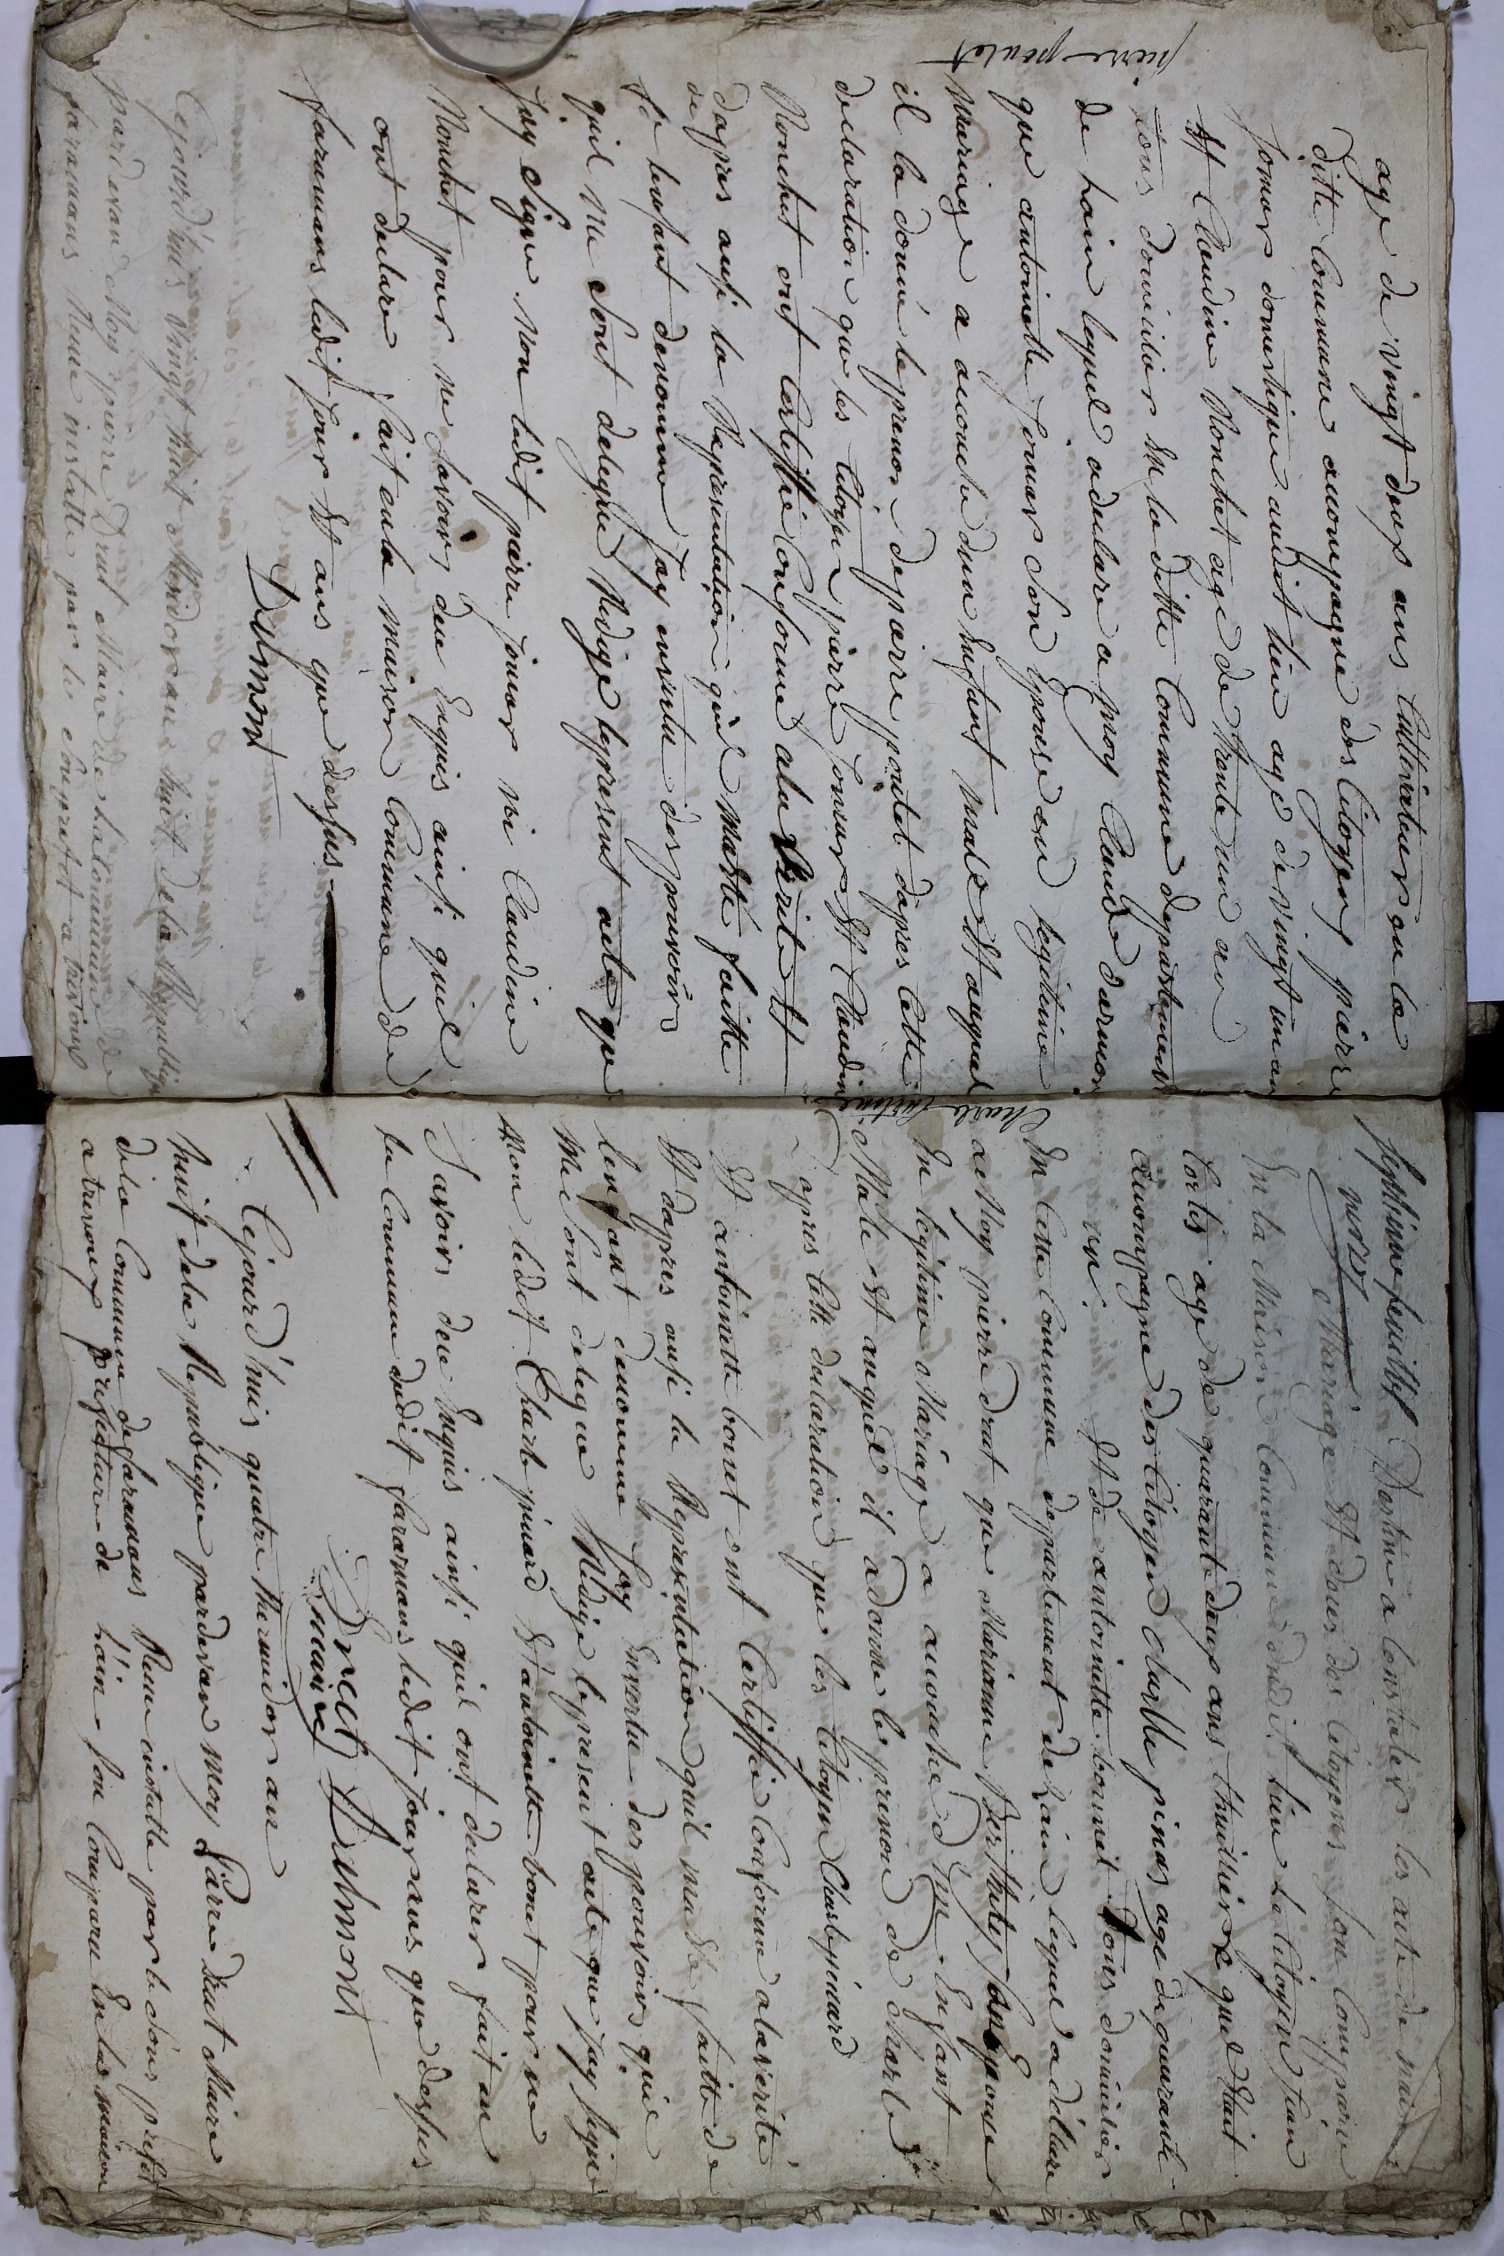 pierre poulet
age de vingt deux ans Cultivateur en la
ditte Commune accompagne des Citoyen pierre
Jomar domestique audit lieu age de vingt un an
Et Claudine Monchet age de trente un an
tous domicilier En la ditte Commune departement
de Lain lequel a declare a moy Claude Darmon
que antoinette Jomar Son Epouse en legitime
Mariage a accouche dun Enfant Male Et auquel
il la donné le prenon de pierre poulet dapres Cette
declaration que les Citoyen pierre Jomar Et Claudine
Monchet ont Certiffié Conforme a la Verité Et
dapres ausi la Representation quil Ma Eté faitte
de lenfant denommé Jay en vertu des pouvoirs
quil Me Sont delegué Redigé le present acte que
Jay Signe Non ledit pierre Jomar ni Claudine
Monchet pour ne Savoir, deue Enquis ainsi quil
ont declaré fait en la Maison Commune de
faramans ledit jour Et ans que dessus
Dumont
Cejourd'huis vingt huit Messidor an huit de la Republique
pardevan Moy pierre Drut Maire de la Commune de
faramans Reune installe par le Souprefet a trevoux
Septieme feuillet Destiné a Constater les acte de naissance
Mariage Et doces des Citoyens Son Comparu
mort
En la Maison Commune dudit lieu le Citoyen Jean
Cortis age de quarant deux ans thuillier
accompagne des Citoyen Charle pinar age de quarante
Et de antoinette bonnet tous domicilier
En Cette Commune departement de Lain lequel a déllare
a Moy pierre drut que Marianne Son Epouse
En legitime Mariage a accouche dun Enfant
Male Et auquel il a donne le prenon de Charle
apres Cette declaration que les Citoyen Charle pinard
Et antoinette bonet ont Certiffié Conforme a la verité
Et dapres ausi la Representation quil ma Eté faitte de
lenfant denomme Jay En vertu des pouvoirs quil
Me Sont delegue Redige le present acte que Jay Signe
Non ledit Charle pinard Et antoinette bonet pour ne
Savoir deue Enquis ainsi quil ont declarer fait en
la Commune dudit faramans ledit jour ans que dessus
Drut Dumont
maire
Cejourd'huis quatre thermidor an
huit de la Republique pardevan Moy pierre drut Maire
de la Commune de faramans Reune installe par le Sous prefet
a trevoux prefecture de Lain Son Comparu En la Maison